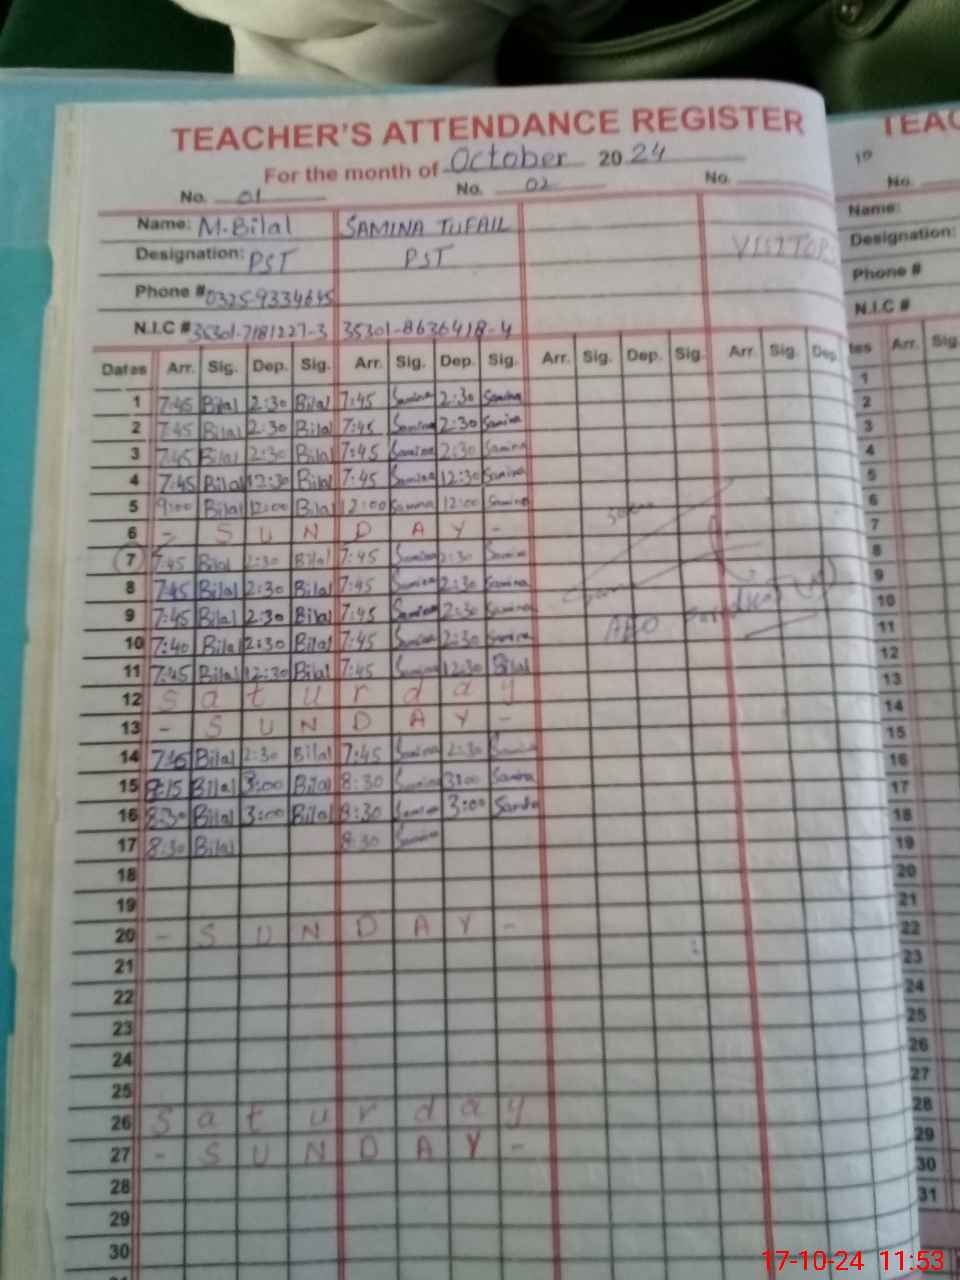 TEACHER'S ATTENDANCE REGISTER TEAC
For the month of October 2024 10
No. 01 No. 02 No. No.
Name: M.Bilal SAMINA TUFAIL Name:
Designation: PST PST VISITORS Designation:
Phone # 0325-9334645 Phone #
N.I.C # 35301-7181227-3 35301-8636418-4 N.I.C #
Dates Arr. Sig. Dep. Sig. Arr. Sig. Dep. Sig. Arr. Sig. Dep. Sig. Arr. Sig. Dep. tes Arr. Sig.
1 7:45 Bilal 2:30 Bilal 7:45 Samina 2:30 Samina 1
2 7:45 Bilal 2:30 Bilal 7:45 Samina 2:30 Samina 2
3 7:45 Bilal 2:30 Bilal 7:45 Samina 2:30 Samina 3
4 7:45 Bilal 12:30 Bilal 7:45 Samina 12:30 Samina 4
5 9:00 Bilal 12:00 Bilal 12:00 Samina 12:00 Samina 5
6 - S U N D A Y - 6
7 7:45 Bilal 2:30 Bilal 7:45 Samina 2:30 Samina 7
8 7:45 Bilal 2:30 Bilal 7:45 Samina 2:30 Samina 8
9 7:45 Bilal 2:30 Bilal 7:45 Samina 2:30 Samina 9
10 7:40 Bilal 2:30 Bilal 7:45 Samina 2:30 Samina AEO 10
11 7:45 Bilal 12:30 Bilal 7:45 Samina 12:30 Bilal 11
12 S a t u r d a y 12
13 - S U N D A Y - 13
14 7:45 Bilal 2:30 Bilal 7:45 Samina 2:30 Samina 14
15 8:15 Bilal 3:00 Bilal 8:30 Samina 3:00 Samina 15
16 8:30 Bilal 3:00 Bilal 8:30 Samina 3:00 16
17 8:30 Bilal 8:30 Samina 17
18 18
19 19
20 - S U N D A Y - 20
21 21
22 22
23 23
24 24
25 25
26 S a t u r d a y 26
27 - S U N D A Y - 27
28 28
29 29
30 30
31
17-10-24 11:53